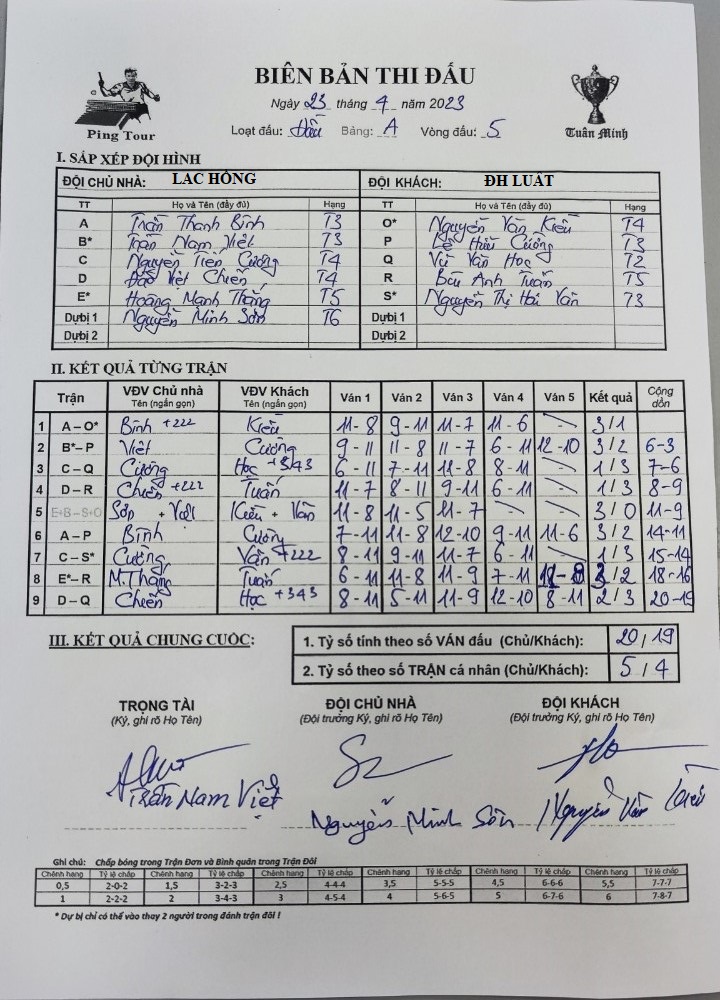 BIÊN BẢN THI ĐẤU
Ping Tour
Tuấn Minh
Ngày 23 tháng 4 năm 2023
Loạt đấu: Bảng: A Vòng đấu: 5
I. SẮP XẾP ĐỘI HÌNH
ĐỘI CHỦ NHÀ: LẠC HỒNG ĐỘI KHÁCH: ĐH LUẬT
TT Họ và Tên (đầy đủ) Hạng TT Họ và Tên (đầy đủ) Hạng
A Trần Thanh Bình T3 O* Nguyễn Văn Kiều T4
B* Trần Nam Việt T3 P Lê Hữu Cường T3
C Nguyễn Tiến Cường T4 Q Vũ Văn Học T2
D Đào Việt Chiến T4 R Bùi Anh Tuấn T5
E* Hoàng Mạnh Thắng T5 S* Nguyễn Thị Hải Vân T3
Dự bị 1 Nguyễn Minh Sơn T6 Dự bị 1
Dự bị 2 Dự bị 2
II. KẾT QUẢ TỪNG TRẬN
Trận VĐV Chủ nhà Tên (ngắn gọn) VĐV Khách Tên (ngắn gọn) Ván 1 Ván 2 Ván 3 Ván 4 Ván 5 Kết quả Cộng dồn
1 A – O* Bình +222 Kiều 11-8 9-11 11-7 11-6 3/1
2 B* – P Việt Cường 9-11 11-8 11-7 6-11 12-10 3/2 6-3
3 C – Q Cường Học +343 6-11 7-11 11-8 8-11 1/3 7-6
4 D – R Chiến +222 Tuấn 11-7 8-11 9-11 6-11 1/3 8-9
5 E+B – S+O Sơn + Việt Kiều + Vân 11-8 11-5 11-7 3/0 11-9
6 A – P Bình Cường 7-11 11-8 12-10 9-11 11-6 3/2 14-11
7 C – S* Cường Vân +222 8-11 9-11 11-7 6-11 1/3 15-14
8 E* – R M.Thắng Tuấn 6-11 11-8 11-9 7-11 3/2 18-16
9 D – Q Chiến Học +343 8-11 5-11 11-9 12-10 8-11 2/3 20-19
III. KẾT QUẢ CHUNG CUỘC:
1. Tỷ số tính theo số VÁN đấu (Chủ/Khách): 20/19
2. Tỷ số theo số TRẬN cá nhân (Chủ/Khách): 5/4
TRỌNG TÀI ĐỘI CHỦ NHÀ ĐỘI KHÁCH
(Ký, ghi rõ Họ Tên) (Đội trưởng Ký, ghi rõ Họ Tên) (Đội trưởng Ký, ghi rõ Họ Tên)
Trần Nam Việt Nguyễn Minh Sơn Nguyễn Văn Kiều
Ghi chú: Chấp bóng trong Trận Đơn và Bình quân trong Trận Đôi
Chênh hạng Tỷ lệ chấp Chênh hạng Tỷ lệ chấp Chênh hạng Tỷ lệ chấp Chênh hạng Tỷ lệ chấp Chênh hạng Tỷ lệ chấp Chênh hạng Tỷ lệ chấp
0,5 2-0-2 1,5 3-2-3 2,5 4-4-4 3,5 5-5-5 4,5 6-6-6 5,5 7-7-7
1 2-2-2 2 3-4-3 3 4-5-4 4 5-6-5 5 6-7-6 6 7-8-7
* Dự bị chỉ có thể vào thay 2 người trong đánh trận đôi !